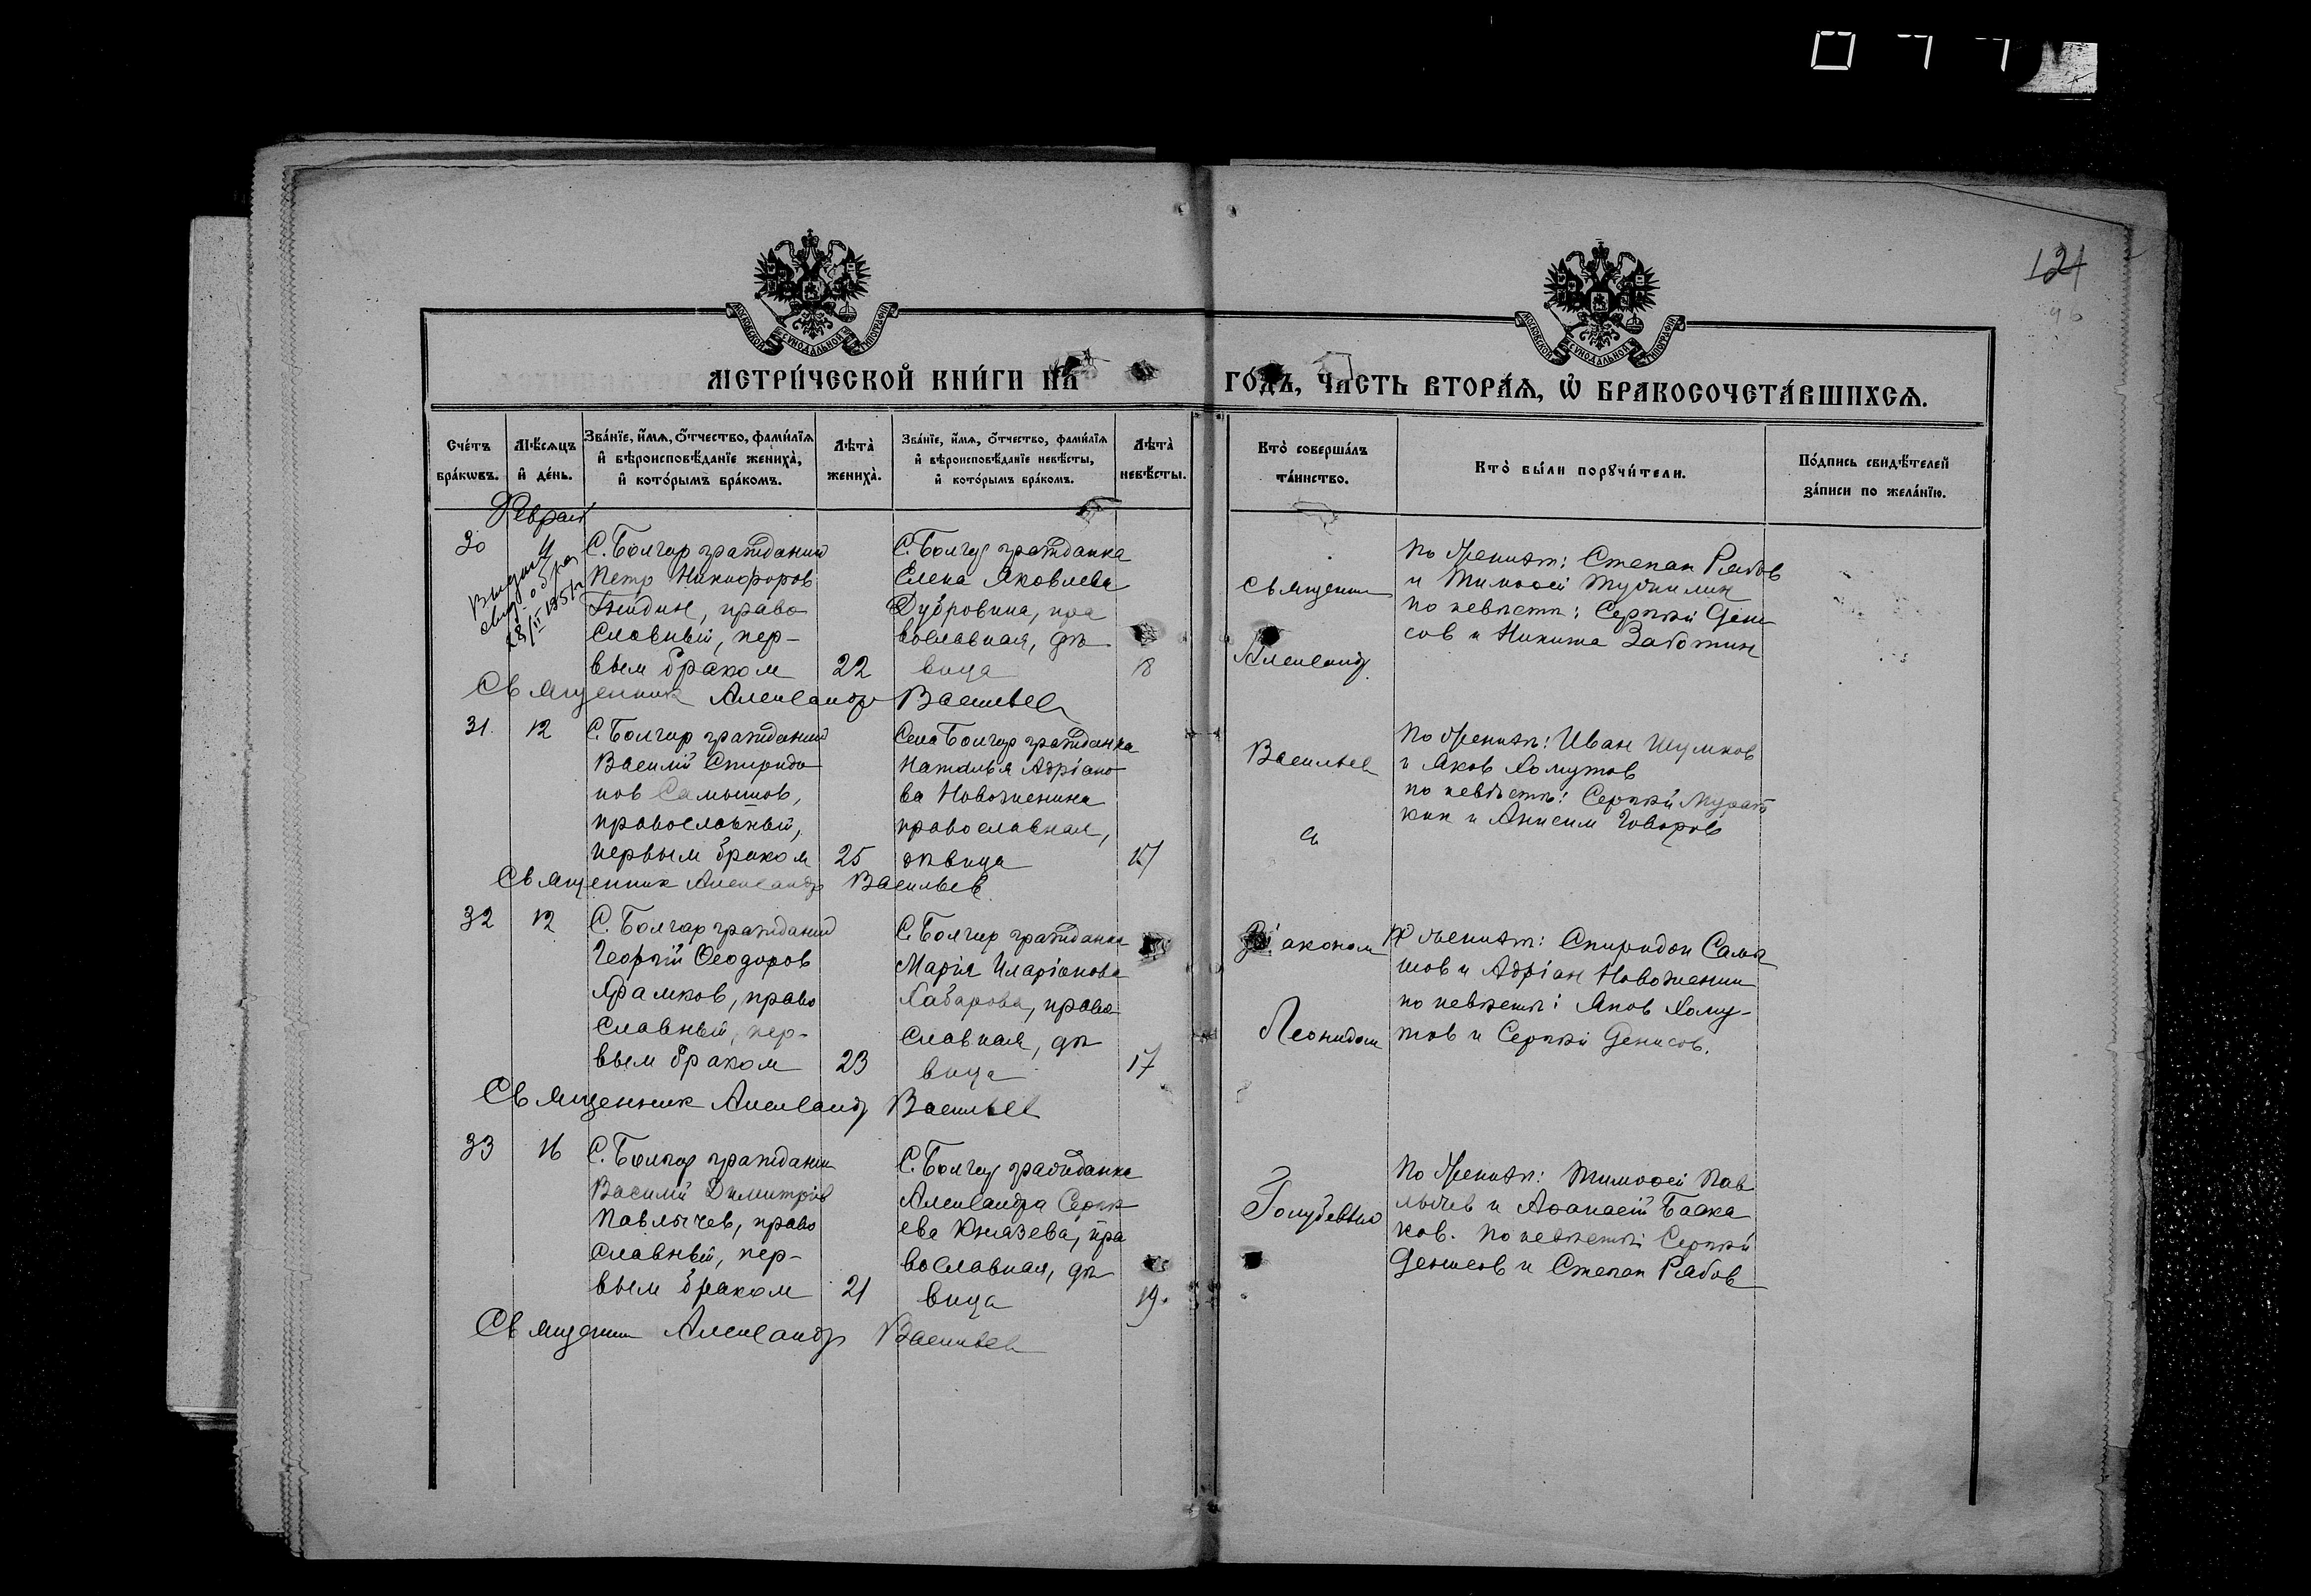 124
МОСКОВСКОЙ СѴНОДАЛЬНОЙ ТИПОГРАФІИ
МОСКОВСКОЙ СѴНОДАЛЬНОЙ ТИПОГРАФІИ
МЕТРИ́ЧЕСКОЙ КНИ́ГИ НА ГО́ДЪ, ЧА́СТЬ ВТОРА́Ѧ, Ѡ҆ БРАКОСОЧЕТА́ВШИХСѦ.
Сче́тъ бра́кѡвъ.
Мѣ́сѧцъ и҆ де́нь.
Зва́нїе, и҆́мѧ, ѻ҆́тчество, фами́лїѧ и҆ вѣроисповѣ́данїе жениха̀, и҆ кото́рымъ бра́комъ.
Лѣта̀ жениха̀.
Зва́нїе, и҆́мѧ, ѻ҆́тчество, фами́лїѧ и҆ вѣроисповѣ́данїе невѣ́сты, и҆ кото́рымъ бра́комъ.
Лѣта̀ невѣ́сты.
Кто̀ соверша́лъ та́инство.
Кто̀ бы́ли порꙋчи́тели.
По́дпись свидѣ́телей за́писи по жела́нїю.
Феврал
30
С. Болгар гражданин
Петр Никифоров
право
славный, пер-
вым браком
22
С. Болгар гражданка
Елена Яковлева
Дубровина, пра
вославная, дѣ
вица
18
Священник
Александр
По женихѣ: Степан Рябов
и Тимофей
по невѣстѣ: Сергѣй Дени
сов и Никита Заботин
Священник Александр Васильев
31.
12
С. Болгар гражданин
Василій Спиридо
нов Самышов,
православный,
первым браком
25
Села Болгар гражданка
Наталья Адріано
ва Новоженина
православная,
дѣвица
17
Васильев
с
По женихѣ: Иван Шумков
и Яков Хомутов
по невѣстѣ: Сергѣй
кин и Анисим Говоров
Священник Александр Васильев
32
12
С. Болгар гражданин
Георгій Ѳеодоров
Храмков, право
славный, пер-
вым браком
23
С. Болгар гражданка
Марія Иларіонова
Хабарова, право
славная, дѣ
вица
17
Діаконом
Леонидом
По женихѣ: Спиридон Самы
шов и Адріан Новоженин
по невѣстѣ: Яков Хому-
тов и Сергѣй Денисов.
Священник Александр Васильев
33
16
С. Болгар гражданин
Василій Димитріев
Павлычев, право
славный, пер-
вым браком
21
С. Болгар гражданка
Александра Сергѣ
ева Князева, пра
вославная, дѣ
вица
19.
Голубевым
По женихѣ: Тимоѳей Пав
лычев и Аѳанасій
ков. По невѣстѣ: Сергѣй
Денисов и Степан Рябов
Священник Александр Васильев